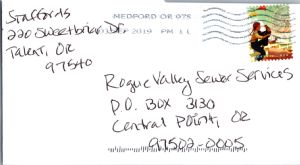 Staffords
MEDFORD OR 975
220 Sweetbriar Dr
2019 PM 1 L
Talent, OR
97540
Rogue Valley Sewer Services
P.O. Box 3130
Central Point, OR
97502-0005